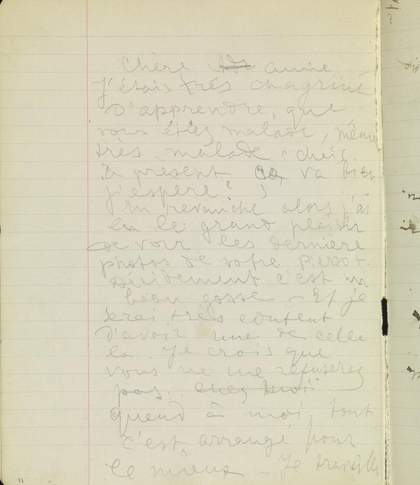 Chère amie
J'étais très chagriné
D'apprendre, que
vous êtes malade, même
très malade, chère.
à présent ça va bien
j'espère!
En revanche alors j'ai
eu le grand plaisir
de voir les dernière
photos de votre
Décidement c'est un
beau gosse – Et je
serai très content
d'avoir une de celle
là. Je crois que
vous ne me refuserez
pas, chez moi
quand à moi, tout
c'est arrangé pour
le mieux – Je travaille